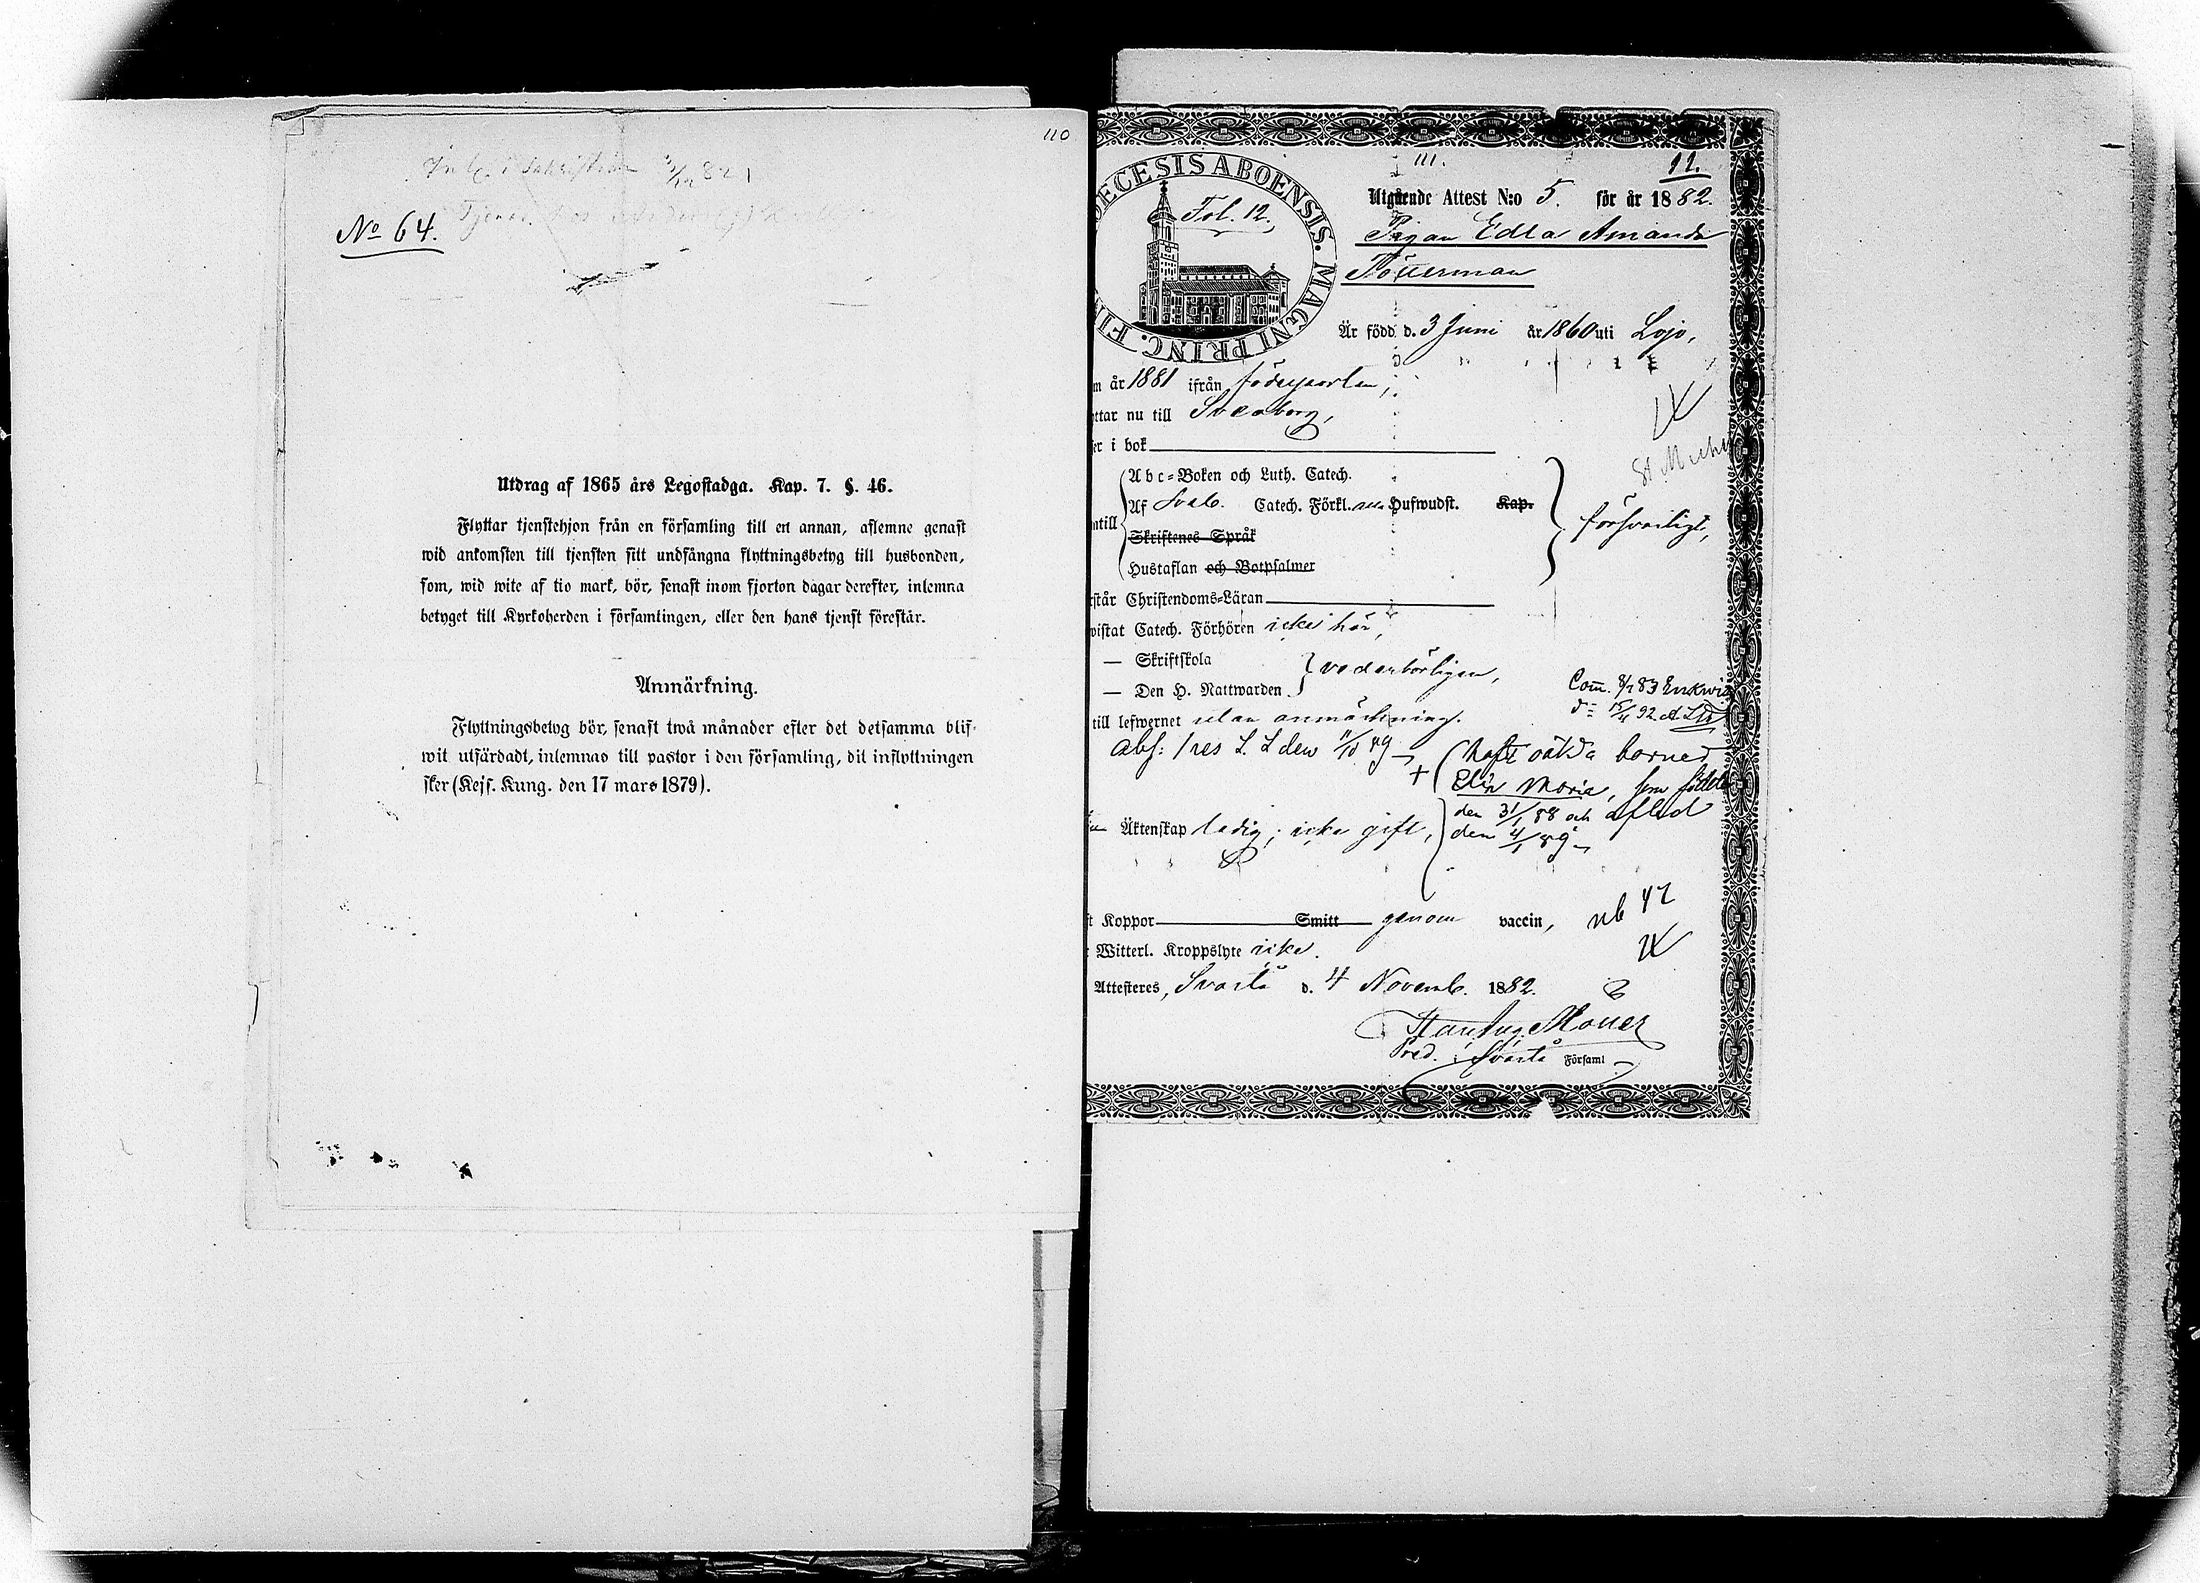 110
No 64.
Utdrag af 1865 års Legostadga. Kap. 7. §. 46.
Flyttar tjenstehjon från en församling till en annan, aflemne genast
wid ankomsten till tjensten sitt undfångna flyttningsbetyg till husbonden,
som, wid wite af tio mark, bör, senast inom fjorton dagar derefter, inlemna
betyget till Kyrkoherden i församlingen, eller den hans tjenst förestår.
Anmärkning.
Flyttningsbetyg bör, senast twå månader efter det detsamma blif-
wit utfärdadt, inlemnas till pastor i den församling, dit inflyttningen
sker (Kejs. Kung. den 17 mars 1879).
111.
ECESIS ABOENSIS. MAGNI PRINC. FI
Fol. 12.
Utgående Attest N:o 5. för år 1882.
Pigan Edla Amanda
Är född d. 3 Juni år 1860 uti Lojo,
m år 1881 ifrån födelseorten,
ttar nu till Sveaborg,
er i bok
Abc-Boken och Luth. Catech.
Af Sveb. Catech. Förkl. Hufwudst. Kap.
ntill
Skriftenes Språk
försvarligt,
Hustaflan och Botpsalmer
rstår Christendoms-Läran
wistat Catech. Förhören icke här,
— Skriftskola
— Den H. Nattwarden
vederbörligen,
Com. 8/7 83
till lefwernet utan anmärkning.
15/4 92
+ (haft oäkta barnet
Elin Maria, som föddes
den 31/1 88 och afled
den 4/1 89
Äktenskap ledig; icke gift,
t Koppor Smitt genom vaccin,
nb 42
Witterl. Kroppslyte icke.
Attesteres, Svartå d. 4 Novemb. 1882.
Pred. i Svartå Församl